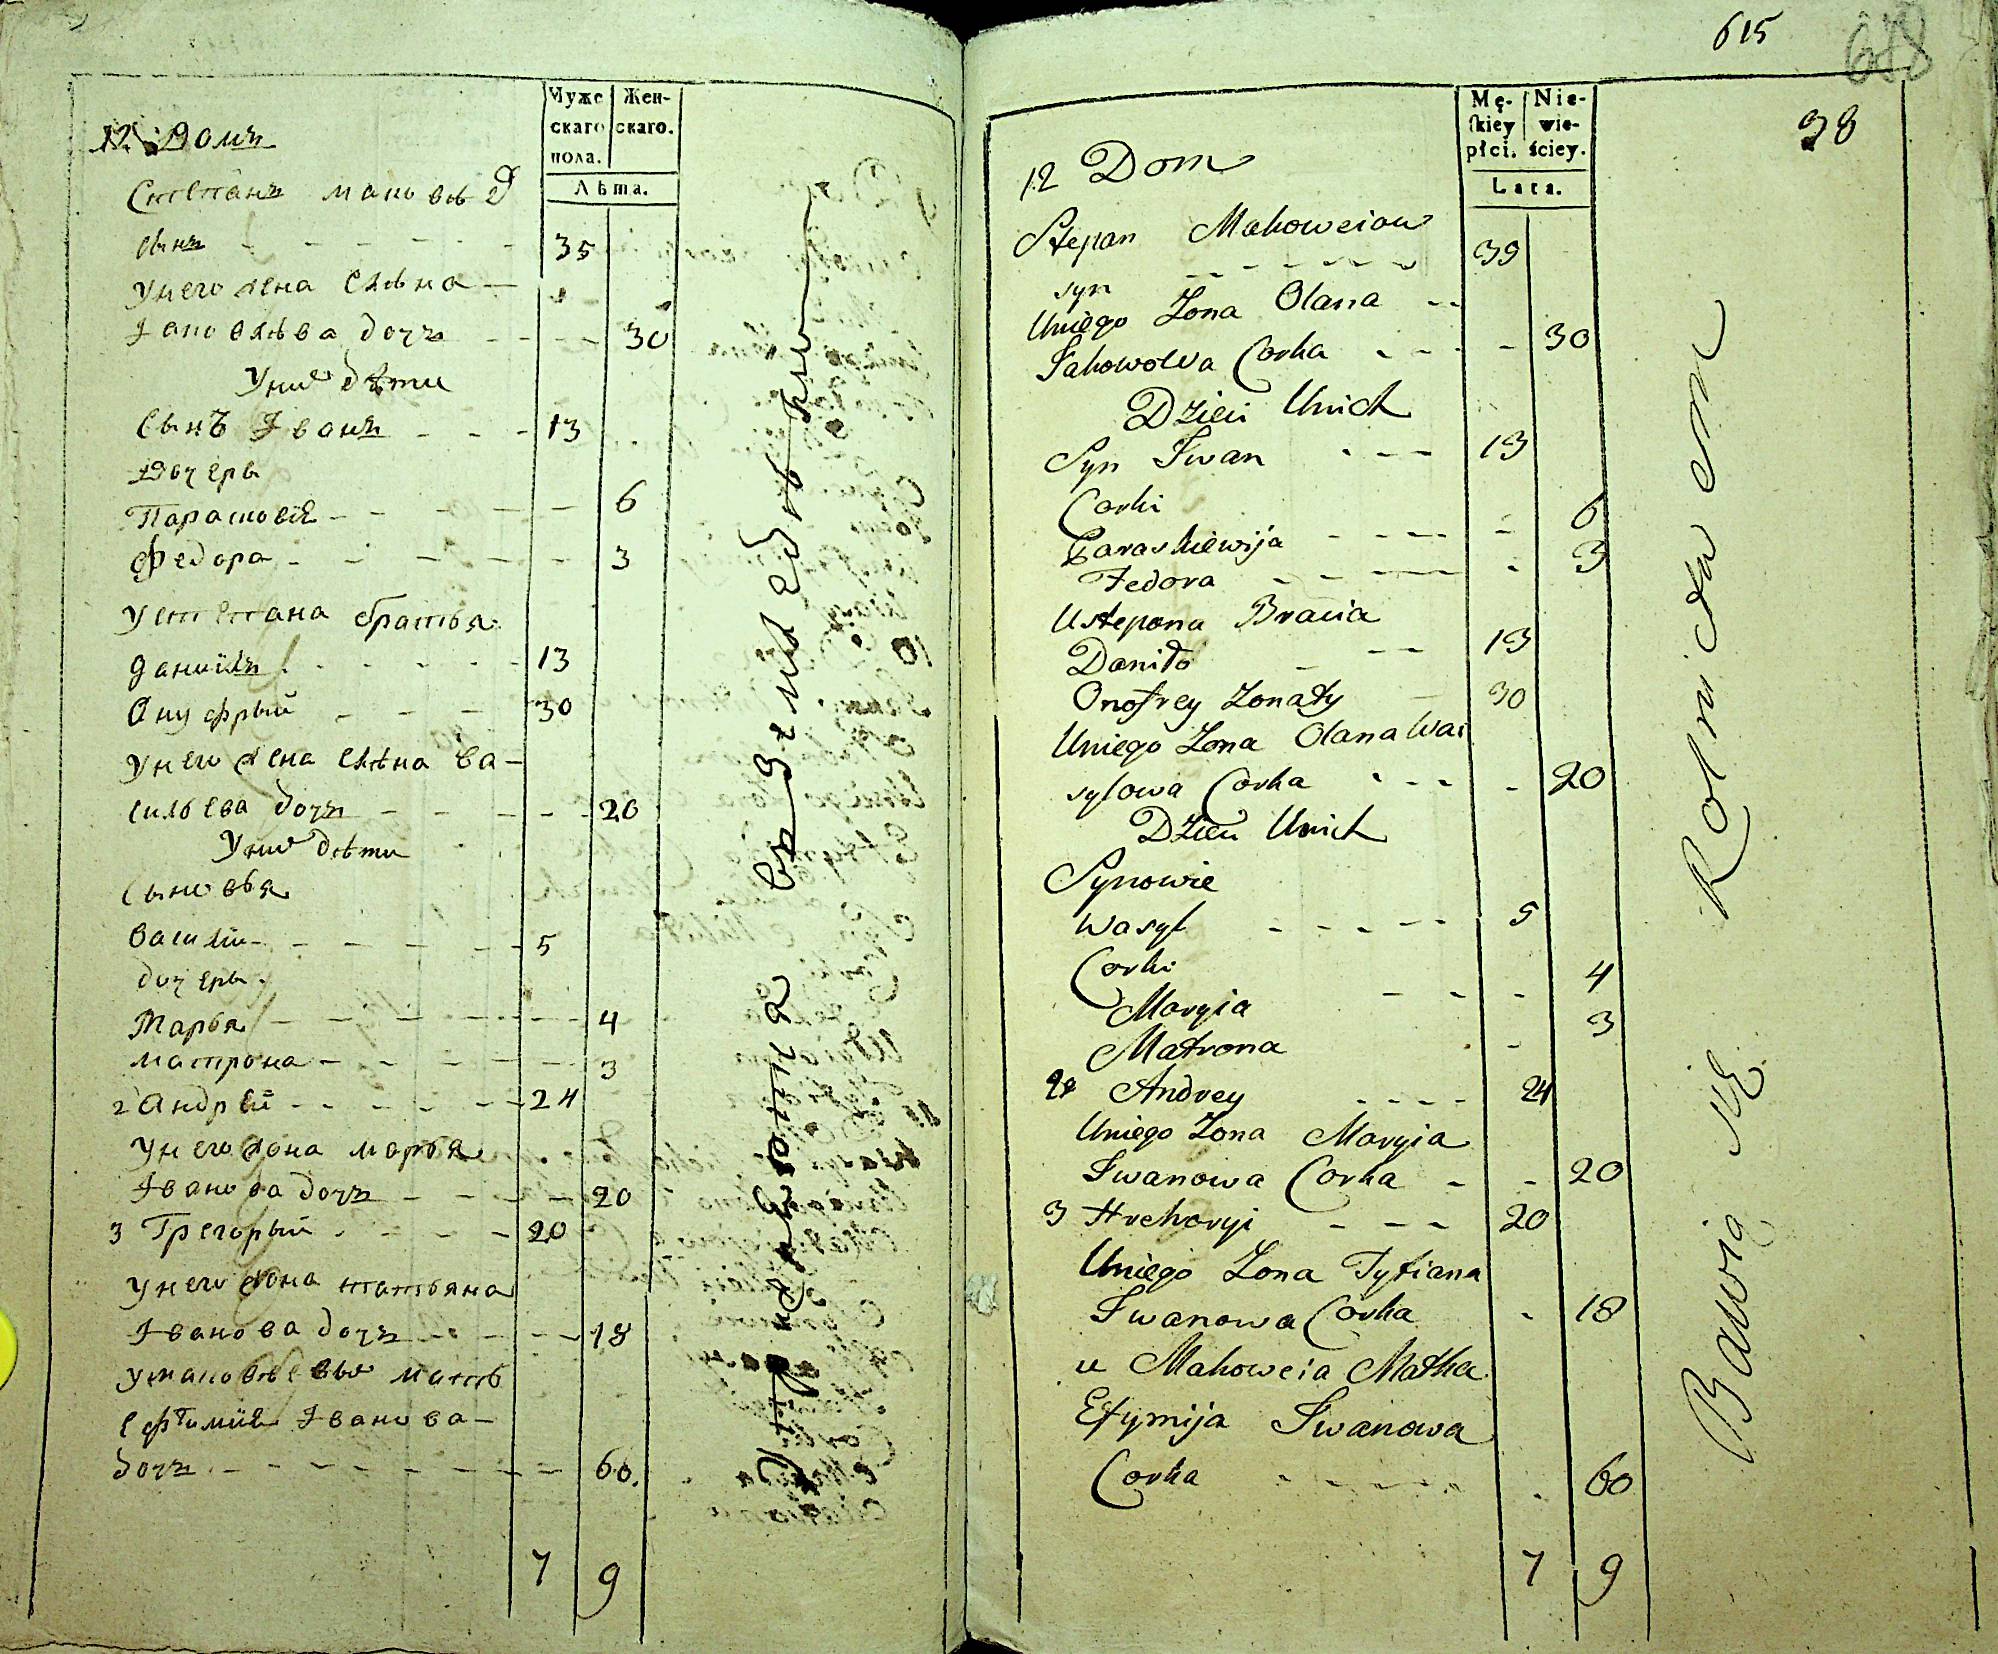 Муже
скаго
пола.
Жен-
скаго.
Лѣта.
12. Домъ
Степанъ маковѣе
сынъ - - - - - - 35
Унего жена Елѣна -
Іаковлѣва дочъ - - - - 30
Униѵ дѣти
Сынъ Іванъ - - - 13
Дочерѣ
Параскові́я - - - - - 6
Федора - - - - - - 3
Устепана братья
Даниїлъ - - - - - 13
Онуфрый - - - 30
Унего жена елѣна ва-
сильева дочъ - - - - - 20
Униѵ дѣти
Сыновья
Василій - - - - - - 5
дочеры
Марья - - - - - - - 4
матрона - - - - 3
2 Андрей - - - - - - 24
Унего жона марья
Іванова дочъ - - - - - 20
3 Грегорый - - - - 20
Унего жона татьяна
Іванова дочъ - - - - - 18
Умаковѣевыѵ мать
ефтимия Іванова-
дочъ - - - - - - - - - 60.
7 9
615
618
38
Mę-
skiey
płci.
Nie-
wie-
ściey.
Lata.
12 Dom
Stepan Makoweiow
syn - - - - - - - 35
Uniego Zona Olana - -
Jakowowa Corka - - - - 30
Dzieci Unich
Syn Iwan - - - 13
Corki
Paraskiewija - - - - - 6
Fedora - - - - - - 3
Ustepana Bracia
Daniło - - - 13
Onofrey Zonaty - 30
Uniego Zona Olana Wa
sylowa Corka - - - - 20
Dzieci Unich
Synowie
Wasyl - - - - - 5
Corki
Maryia - - - 4
Matrona - 3
2 Andrey - - - - 24
Uniego Zona Maryia
Iwanowa Corka - - 20
3 Hrehoryi - - - 20
Uniego Zona Tytiana
Iwanowa Corka - 18
u Makoweia Matka
Efymija Iwanowa
Corka - - - - - - - 60
7 9
Bawią się Rolnictwem